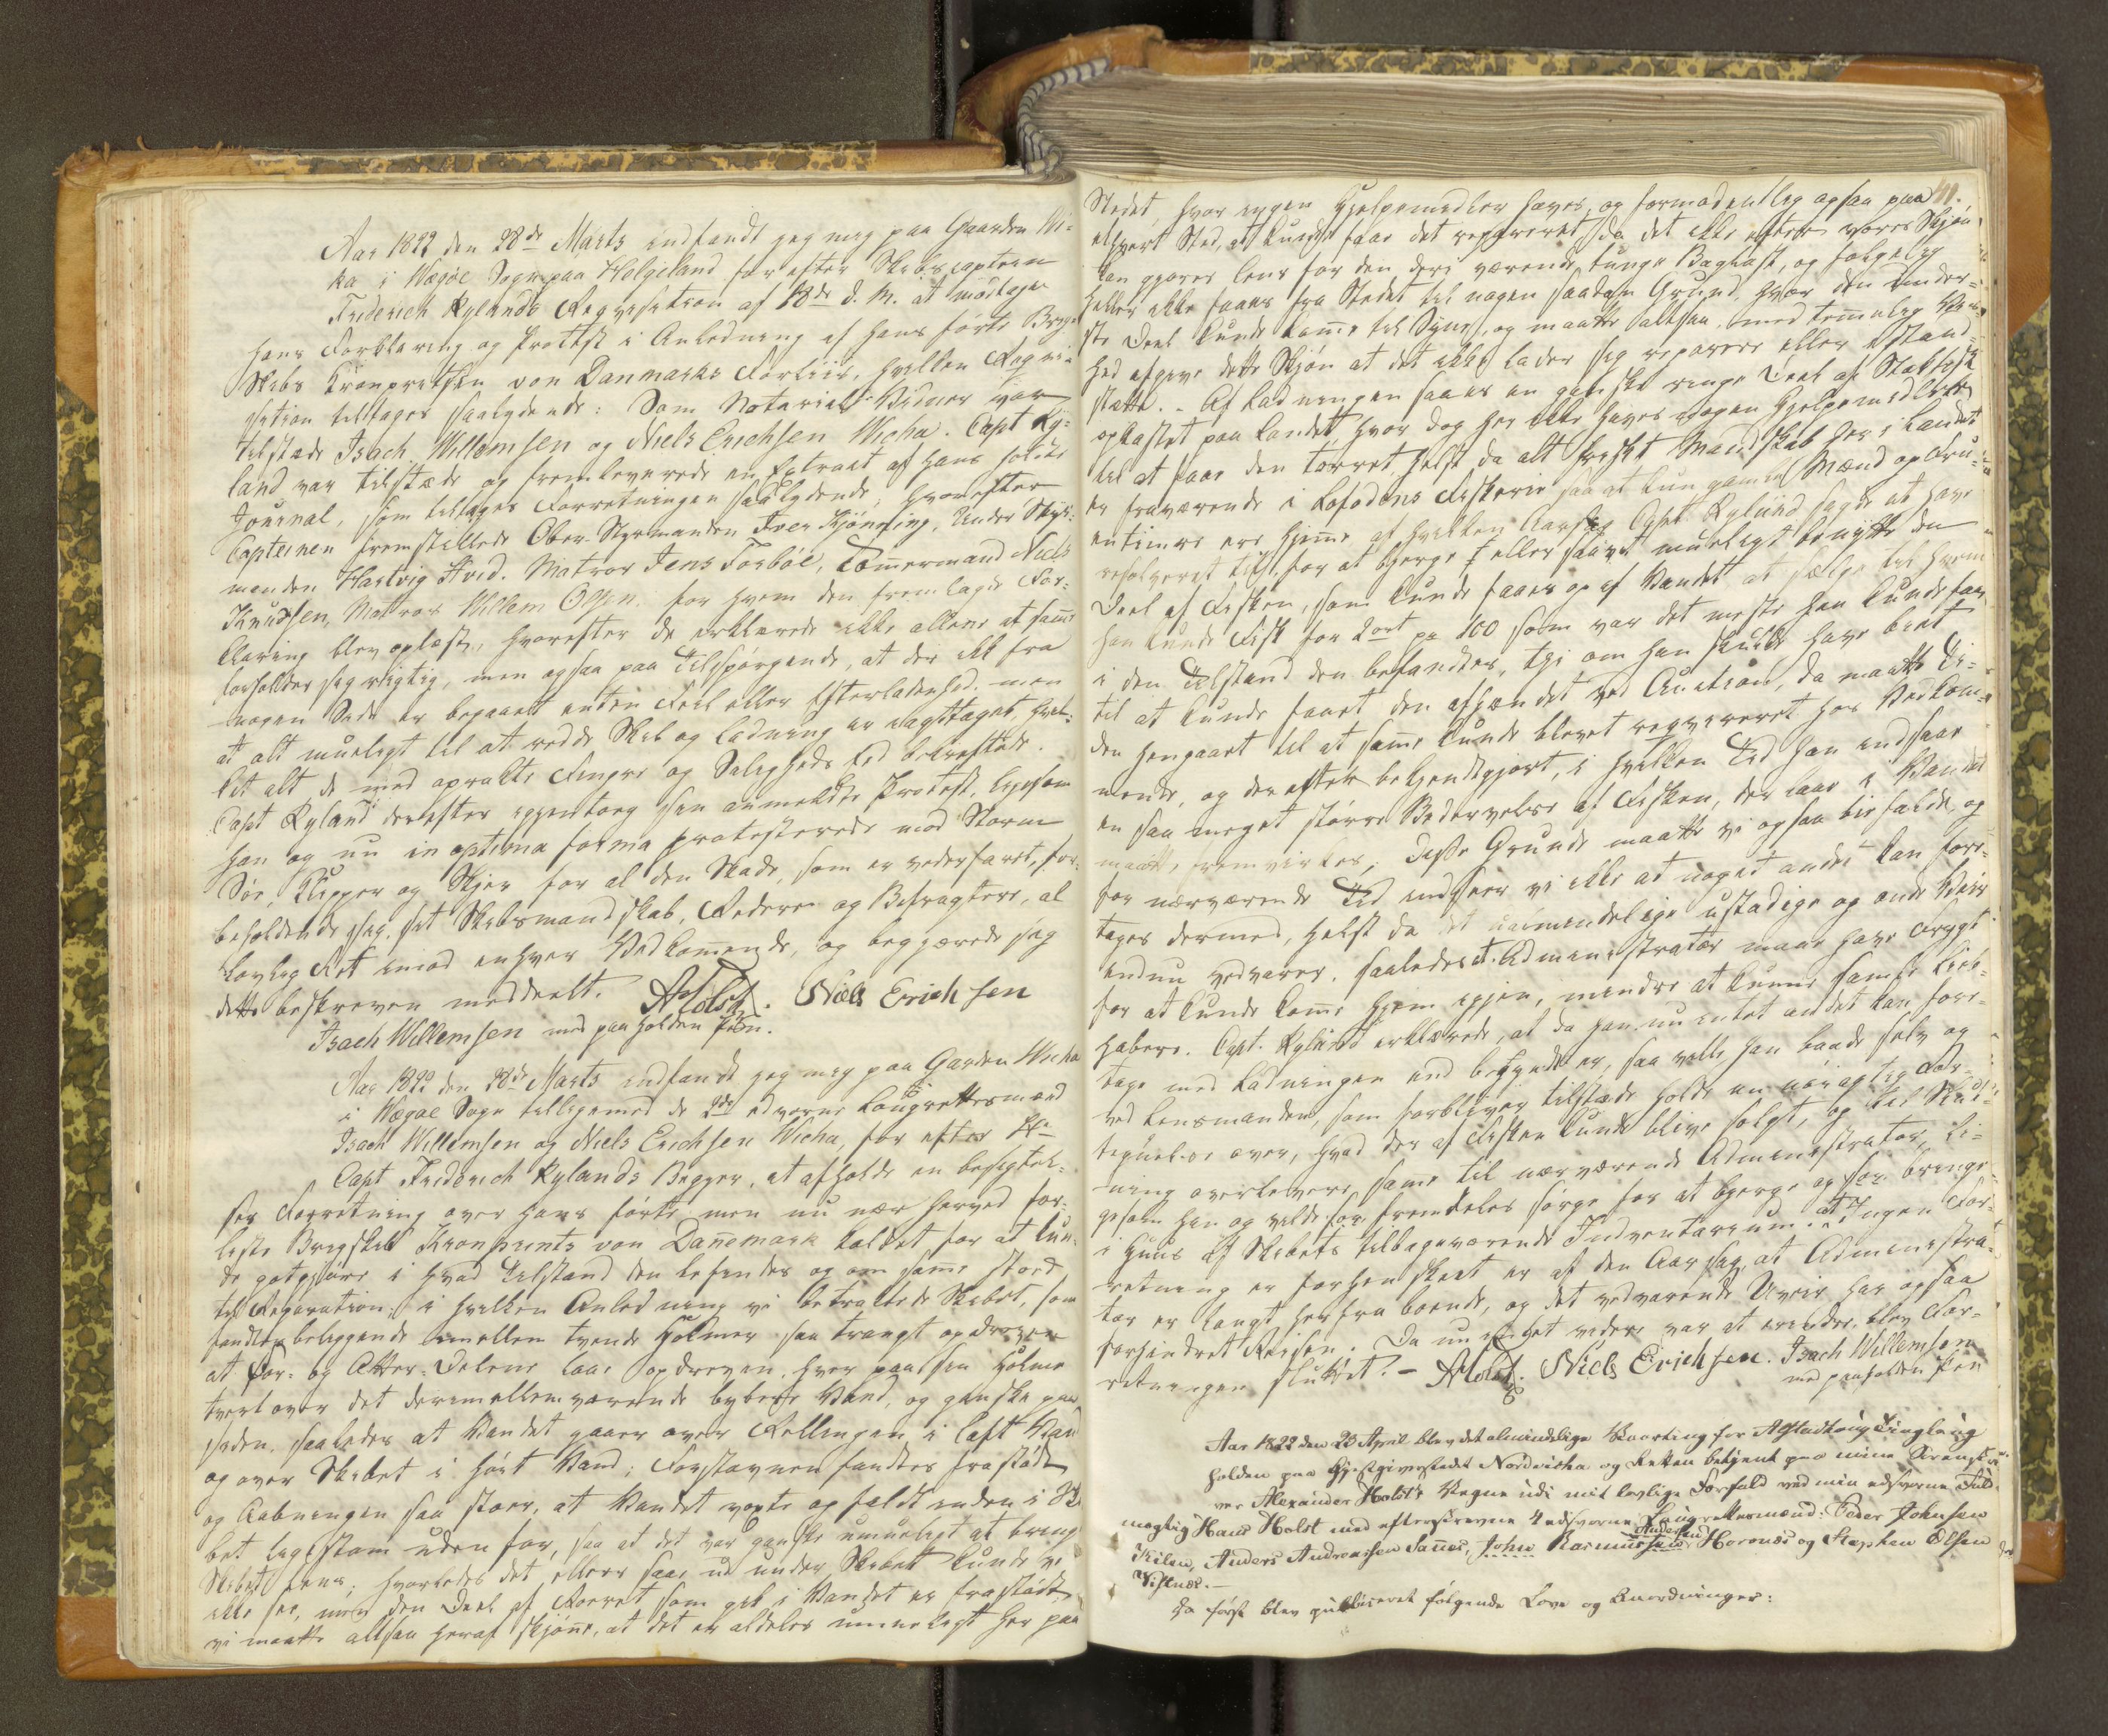 Aar 1822 den 28de Marts indfandt jeg mig paa Gaarden Vi-
ka i Wægøe Sogn paa Helgeland for efter Skibscaptein
Friderich Rylands Reqvisition af 18de d. M. at modtage
hans Forklaring og Protest i Anledning af hans førte Brig-
Skibs Kronprintsen von Danmarks Forliis, hvilken Reqvi-
sition tillages saalydende: Som Notarial Vidner var
tilstæde Isach Willemsen og Niels Erichsen Wicha. Capt Ry-
land var tilstæde og fremleverede en Extract af hans holdte
Journal, som tillages Forretningen saalydende; hvorefter
Capteinen fremstillede Ober Styrmanden Iver Kjønning, Under Styr-
manden Hartvig Hvid. Matros Jens Torbøl, Tømmermand Niels
Knudsen, Matros Willem Olsen. for hvem den fremlagde For-
klaring blev oplæst, hvorefter de erklærede ikke allene at samme
forholder sig rigtig, men ogsaa paa Tilspørgende, at der ikke fra
nogen Side er begaaet enten Feil eller Efterladenhed. men
at alt mueligt til at redde Skib og Ladning er iagttaget, hvil-
ket alt de med oprakte Fingre og Saligheds Eed bekræftede.
Capt Ryland derefter igjentog sin anmeldte Protest, ligesom
han og nu in optima forma protesterede mod Storm
Søe, Klipper og Skjær for al den Skade, som er vederfaret, for-
beholdende sig, sit Skibsmandskab, Redere og Befragtere, al
lovlig Ret imod enhver Vedkommende, og begjærede sig
dette beskreven meddeelt. AHolst. Niels Erichsen
Isach Willemsen med paaholden Pen.
Aar 1822 den 28de Marts indfandt jeg mig paa Garden Wicha
i Wægøe Sogn tilligemed de 2de edsvorne Laugrettesmænd
Isach Willemsen og Niels Erichsen Wicha, for efter Hr
Capt Friderich Rylands Begjer, at afholde en besigtel-
ses Forretning over hans førte men nu nær herved for-
liste Brigskib Kronprints von Danemark kaldet for at kun-
de gotgjøre i hvad Tilstand den befindes og om samme stod
til Reparation; i hvilken Anledning vi betragtede Skibet, som
fandtes beliggende imellem tvende Holmer saa trangt opdreven
at For- og Atter-Delene laae opdreven hver paa sin Holme
tvert over det derimellem værende Vand, og ganske paa
siden, saaledes at Vandet gaaer over Rellingen i laft Vand
og over Skibet i høit Vand; Forstavnen fandtes frastødt
og Aabningen saa stoer, at Vandet voxte og faldt inden i Ski
bet ligesom uden for, saa at det var ganske umueligt at bringe
Skibet lens; hvorledes det ellers saae ud under Skibet kunde vi
ikke see, men den Deel af Roeret som gik i Vandet er frastødt,
vi maatte altsaa heraf skjønne, at det er aldeles umueligt her paa
41.
Stedet, hvor ingen Hjelpemidler haves, og formodentlig ogsaa paa
ethvert Sted, at kunde faae det repareret, da det ikke efter vores Skjøn
kan gjøres lens for den deri værende tunge Baglast, og følgelig
heller ikke faaes fra Stedet til nogen saadan Grund, hvor den under-
ste Deel kunde komme til Syne, og maatte altsaa med temmelig Vis-
hed afgive dette Skjøn at det ikke lader sig reparere eller istand-
sætte. - Af Ladningen saaes en ganske ringe Deel af Stokfisk
opkastet paa Landet, hvor dog her ikke haves nogen Hjelpemidler
til at faae den tørret helst da alt friskt Mandskab her i Landet
er fraværende i Lofodens Fiskerie saa at kun gamle Mænd og Fru-
entimre ere hjemme af hvilken Aarsag Capt Ryland sagde at have
resolveret til, for at bjerge eller saavidt mueligt benytte den
Deel af Fisken, som kunde faaes op af Vandet at sælge til hvem
han kunde Fisk for 2 ort pr 100 som var det meste han kunde faae
i den Tilstand den befandtes, thi om han skulde have biet
til at kunde faaet den afhændet ved Auction, da maatte Ti-
den hengaaet til at samme kunde blevet reqvireret hos Vedkom-
mende, og derefter bekjendtgjort, i hvilken Tid han indsaae
en saa meget større Bedærvelse af Fisken, der laae i Vandet
maatte fremvirkes; Disse Grunde maatte vi ogsaa bifalde, og
for nærværende Tid indseer vi ikke at noget andet kan fore-
tages dermed, helst da det ualmindelige ustadige og onde Veir
endnu vedvarer, saaledes at Administrator maae have Frygt
for at kunde komme hjem igjen, mindre at kunne samle Lieb-
habere. Capt. Ryland erklærede, at da han nu intet andet kan fore-
tage med Ladningen end begyndt er, saa vilde han baade selv og
ved Lensmanden, som forbliver tilstæde holde en nøiagtig For-
tegnelse over, hvad der af Fisken kunde blive solgt, og til Slut-
ning overlevere samme til nærværende Administrator, li-
gesom han og vilde fremdeles sørge for at bjerge og bringe
i Huus af Skibets tilbageværende Inventarium. At ingen For-
retning er forhen skeet er af den Aarsag, at Administra-
tor er langt herfra boende, og det vedvarende Uveir har ogsaa
forhindret Reisen. Da nu intet videre var at erindre, blev For-
retningen sluttet. - AHolst. Niels Erichsen. Isach Willemsen
med paaholden Pen
Aar 1822 den 23 April blev det almindelige Vaarting for Tinglaug
holden paa Gjestgiverstedet Nordvicha og Retten betjent paa mine Sorenskri-
ver Alexander Holst's Vegne udi mit lovlige Forfald ved min edsvorne Fuld-
mægtig Hans Holst med efterskrevne 4 edsvorne Laugrettesmænd: Peder Johnsen
Kilen, Anders Andreassen Sannes, John Rasmussen Andersen Hornnæs og Stephen Olsen
Vistnæs. -
Da først blev publiceret følgende Love og Anordninger: